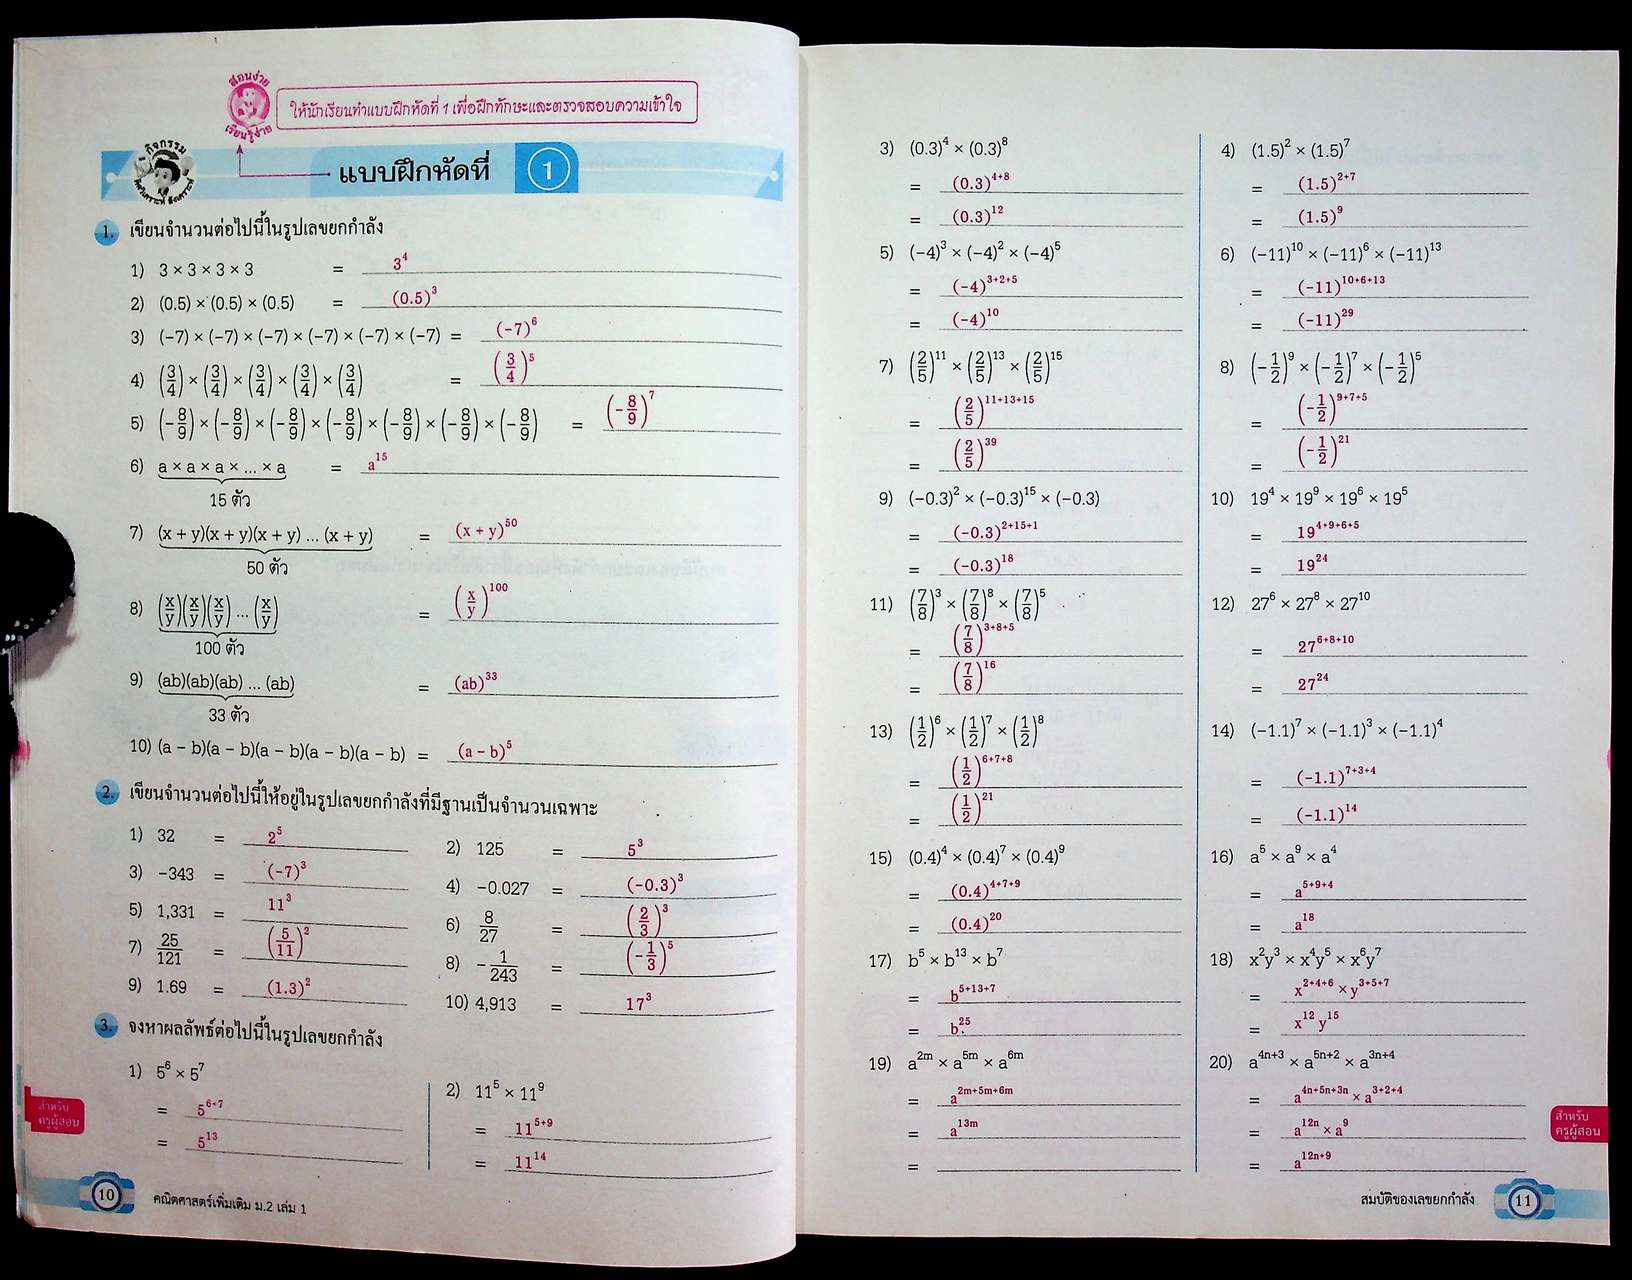 สอนง่าย
เรียนรู้ง่าย
ให้นักเรียนทำแบบฝึกหัดที่ 1 เพื่อฝึกทักษะและตรวจสอบความเข้าใจ
กิจกรรม
แบบฝึกหัดที่ 1
1. เขียนจำนวนต่อไปนี้ในรูปเลขยกกำลัง
1) 3 × 3 × 3 × 3 = 3⁴
2) (0.5) × (0.5) × (0.5) = (0.5)³
3) (−7) × (−7) × (−7) × (−7) × (−7) × (−7) = (−7)⁶
4) (3/4) × (3/4) × (3/4) × (3/4) × (3/4) = (3/4)⁵
5) (−8/9) × (−8/9) × (−8/9) × (−8/9) × (−8/9) × (−8/9) × (−8/9) = (−8/9)⁷
6) a × a × a × ... × a = a¹⁵
15 ตัว
7) (x + y)(x + y)(x + y) ... (x + y) = (x + y)⁵⁰
50 ตัว
8) (x/y)(x/y)(x/y) ... (x/y) = (x/y)¹⁰⁰
100 ตัว
9) (ab)(ab)(ab) ... (ab) = (ab)³³
33 ตัว
10) (a − b)(a − b)(a − b)(a − b)(a − b) = (a − b)⁵
2. เขียนจำนวนต่อไปนี้ให้อยู่ในรูปเลขยกกำลังที่มีฐานเป็นจำนวนเฉพาะ
1) 32 = 2⁵
2) 125 = 5³
3) −343 = (−7)³
4) −0.027 = (−0.3)³
5) 1,331 = 11³
6) 8/27 = (2/3)³
7) 25/121 = (5/11)²
8) −1/243 = (−1/3)⁵
9) 1.69 = (1.3)²
10) 4,913 = 17³
3. จงหาผลลัพธ์ต่อไปนี้ในรูปเลขยกกำลัง
1) 5⁶ × 5⁷
= 5⁶⁺⁷
= 5¹³
2) 11⁵ × 11⁹
= 11⁵⁺⁹
= 11¹⁴
สำหรับ
ครูผู้สอน
10 คณิตศาสตร์เพิ่มเติม ม.2 เล่ม 1
3) (0.3)⁴ × (0.3)⁸
= (0.3)⁴⁺⁸
= (0.3)¹²
4) (1.5)² × (1.5)⁷
= (1.5)²⁺⁷
= (1.5)⁹
5) (−4)³ × (−4)² × (−4)⁵
= (−4)³⁺²⁺⁵
= (−4)¹⁰
6) (−11)¹⁰ × (−11)⁶ × (−11)¹³
= (−11)¹⁰⁺⁶⁺¹³
= (−11)²⁹
7) (2/5)¹¹ × (2/5)¹³ × (2/5)¹⁵
= (2/5)¹¹⁺¹³⁺¹⁵
= (2/5)³⁹
8) (−1/2)⁹ × (−1/2)⁷ × (−1/2)⁵
= (−1/2)⁹⁺⁷⁺⁵
= (−1/2)²¹
9) (−0.3)² × (−0.3)¹⁵ × (−0.3)
= (−0.3)²⁺¹⁵⁺¹
= (−0.3)¹⁸
10) 19⁴ × 19⁹ × 19⁶ × 19⁵
= 19⁴⁺⁹⁺⁶⁺⁵
= 19²⁴
11) (7/8)³ × (7/8)⁸ × (7/8)⁵
= (7/8)³⁺⁸⁺⁵
= (7/8)¹⁶
12) 27⁶ × 27⁸ × 27¹⁰
= 27⁶⁺⁸⁺¹⁰
= 27²⁴
13) (1/2)⁶ × (1/2)⁷ × (1/2)⁸
= (1/2)⁶⁺⁷⁺⁸
= (1/2)²¹
14) (−1.1)⁷ × (−1.1)³ × (−1.1)⁴
= (−1.1)⁷⁺³⁺⁴
= (−1.1)¹⁴
15) (0.4)⁴ × (0.4)⁷ × (0.4)⁹
= (0.4)⁴⁺⁷⁺⁹
= (0.4)²⁰
16) a⁵ × a⁹ × a⁴
= a⁵⁺⁹⁺⁴
= a¹⁸
17) b⁵ × b¹³ × b⁷
= b⁵⁺¹³⁺⁷
= b²⁵
18) x²y³ × x⁴y⁵ × x⁶y⁷
= x²⁺⁴⁺⁶ × y³⁺⁵⁺⁷
= x¹² y¹⁵
19) a²ᵐ × a⁵ᵐ × a⁶ᵐ
= a²ᵐ⁺⁵ᵐ⁺⁶ᵐ
= a¹³ᵐ
=
20) a⁴ⁿ⁺³ × a⁵ⁿ⁺² × a³ⁿ⁺⁴
= a⁴ⁿ⁺⁵ⁿ⁺³ⁿ × a³⁺²⁺⁴
= a¹²ⁿ × a⁹
= a¹²ⁿ⁺⁹
สำหรับ
ครูผู้สอน
สมบัติของเลขยกกำลัง 11